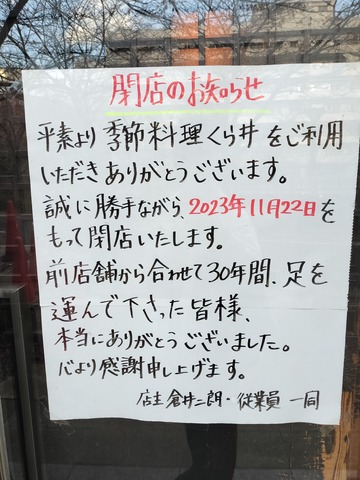 閉店のお知らせ
平素より季節料理くら井をご利用
いただきありがとうございます。
誠に勝手ながら、2023年11月22日を
もって閉店いたします。
前店舗から合わせて30年間、足を
運んで下さった皆様、
本当にありがとうございました。
心より感謝申し上げます。
店主 倉井二朗・従業員 一同